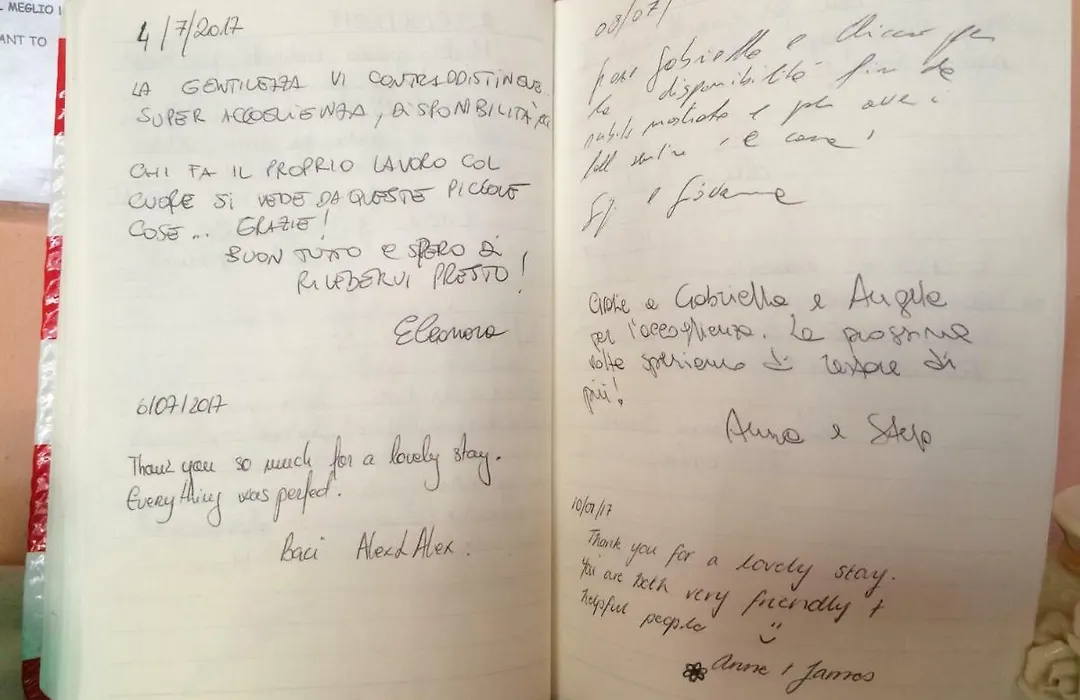 MEGLIO
ANT TO
4/7/2017
LA GENTILEZZA VI CONTRADDISTINGUE.
SUPER ACCOGLIENZA, DISPONIBILITÀ
CHI FA IL PROPRIO LAVORO COL
CUORE SI VEDE DA QUESTE PICCOLE
COSE... GRAZIE!
BUON TUTTO E SPERO DI
RIVEDERVI PRESTO!
Eleonora
6/07/2017
Thank you so much for a lovely stay.
Everything was perfect.
Baci Alex & Alex.
08/07/
Gabriella e
la disponibilità
mostrata e per averci
fatti sentire a casa!
e Giovanna
Grazie a Gabriella e Angelo
per l'accoglienza. La prossima
volta speriamo di restare di
più!
Anna e Stefo
10/07/17
Thank you for a lovely stay.
You are both very friendly +
helpful people
Anne & James